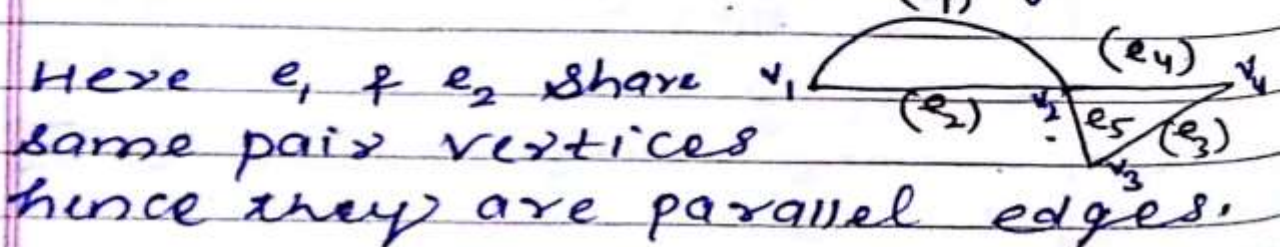 Here e₁ & e₂ share
same pair vertices
hence they are parallel edges.
v₁
(e₂)
v₂
(e₄)
v₄
e₅
(e₃)
v₃